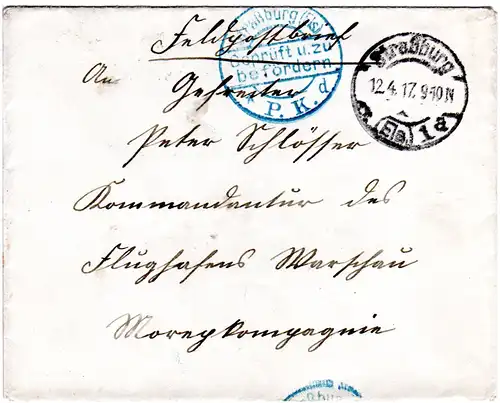 Feldpostbrief
Straßburg (Els)
Geprüft u. zu
befördern
P. K. d.
Straßburg
12.4.17. 9-10 N
(Els) 1 a
An
Gefreiter
Peter Schlösser
Kommandantur des
Flughafens Warschau